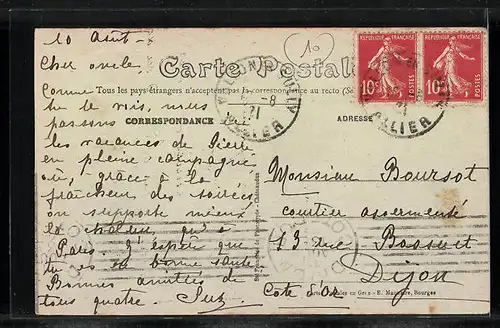 10 Août -
Cher oncle
10
Carte Postale
Tous les pays étrangers n'acceptent pas la correspondance au recto
CORRESPONDANCE
ADRESSE
Comme
tu le vois, nous
passons ici
les vacances de Pierre
en pleine campagne
où, grâce à la
fraîcheur des soirées
on supporte mieux
la chaleur qu'à
Paris. J'espère que
tu es en bonne santé
Bonnes amitiés de
tous quatre. Suz.
REPUBLIQUE FRANÇAISE
10c
POSTES
REPUBLIQUE FRANÇAISE
10c
POSTES
-8
21
ALLIER
ALLIER
Monsieur Boursot
courtier assermenté
13 rue Bossuet
Dijon
Côte d'Or
en Gros - E. Bourges